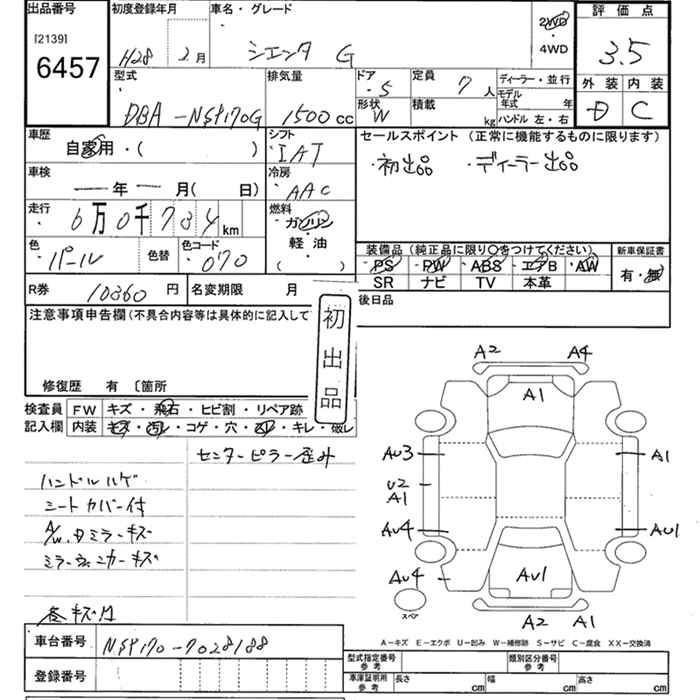 出品番号
[2139]
6457
初度登録年月
H28 2月
車名・グレード
シエンタ G
2WD
・4WD
評価点
3.5
外装 内装
D C
型式
DBA-NSP170G
排気量
1500cc
ドア
・5
形状
W
定員
7人
積載
kg
ディーラー・並行
モデル年式 年
ハンドル 左・右
車歴
自家用・( )
シフト
IAT
セールスポイント(正常に機能するものに限ります)
・初出品 ・ディーラー出品
車検
—年—月(日)
冷房
AAC
走行
6万0千734km
燃料
ガソリン
軽油
( )
色
パール
色替
色コード
070
装備品(純正品に限り○をつけてください)
新車保証書
PS PW ABS エアB AW
有・無
SR ナビ TV 本革
R券 10360円
名変期限 月
後日品
注意事項申告欄(不具合内容等は具体的に記入して
初出品
修復歴 有 〔箇所
検査員記入欄
FW キズ・飛石・ヒビ割・リペア跡
内装 キズ・汚レ・コゲ・穴・スレ・キレ・破レ
センターピラー歪み
ハンドルハゲ
シートカバー付
A/W、Dミラーキズ
ミラーウィンカーキズ
各キズ凹
A2 A4
A1
AU3 A1
U2
A1
AU4 AU1
AU4 AU1
スペア
A2 A1
A-キズ E-エクボ U-凹み W-補修跡 S-サビ C-腐食 XX-交換済
車台番号 NSP170-7028188
登録番号
型式指定番号参考
類別区分番号参考
車庫証明用参考 長さ cm 幅 cm 高さ cm